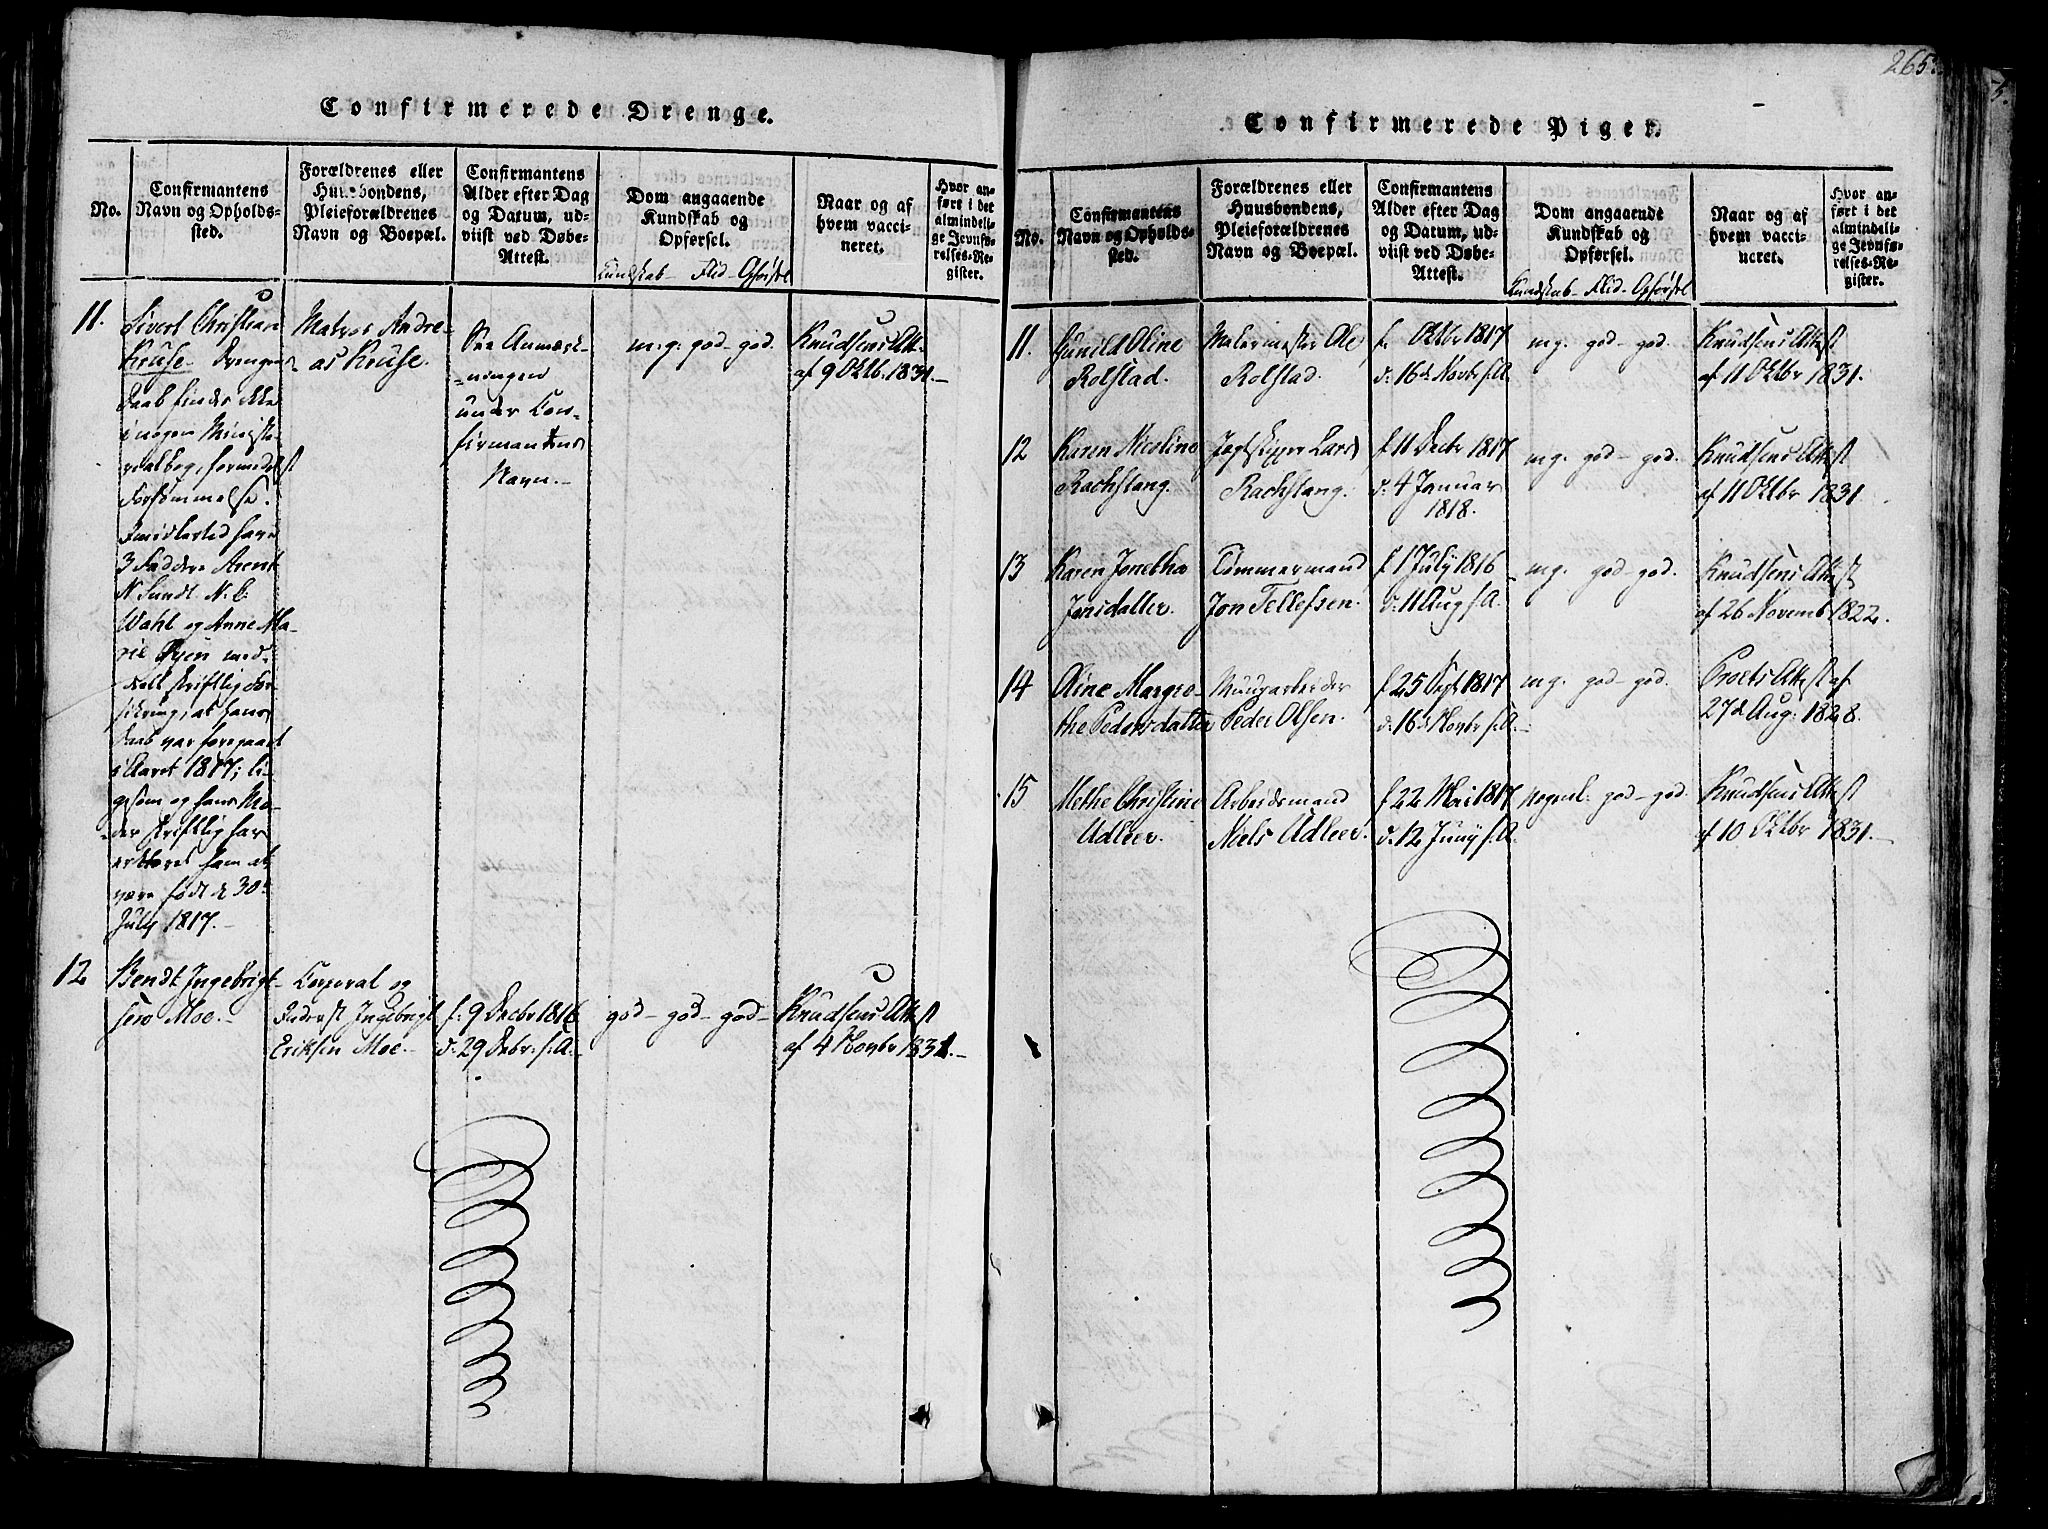 265.
Confirmerede Drenge.
No.
Confirmantens
Navn og Opholds-
sted.
Forældrenes eller
Huusbondens,
Pleieforældrenes
Navn og Boepæl.
Confirmantens
Alder efter Dag
og Datum, ud-
viist ved Døbe-
Attest.
Dom angaaende
Kundskab og
Opførsel.
Kundskab - Flid - Opførsel
Naar og af
hvem vacci-
neret.
Hvor an-
ført i det
almindeli-
ge Jevnfø-
relses-Re-
gister.
11.
Sivert Christian
Kruse. Drengens
Daab findes ikke
i nogen Ministe-
rialbog, formedelst
Forsømmelse.
Imidlertid have
3 Faddere Arent
N. Lundt N. C.
Wahl og Anne Ma-
rie Øyen med-
deelt skriftlig For-
sikring, at hans
Daab var foregaaet
i Aaret 1817; li-
gesom og hans Mo-
der skriftlig har
erklæret ham at
være født d 30te
July 1817.-
Matros Andre-
as Kruse.
See Anmærk-
ningen
under Con-
firmantens
Navn.-
m. g. god - god.
Knudsens Att.
af 9 Oktb. 1831.-
12
Bendt Ingebrigt-
sen Moe.-
Corporal og
Ingebrigt
Eriksen Moe.-
f: 9 Decbr 1816
d: 29 Debr. s. A.-
god - god - god -
Knudsens Attest
af 4 Novbr 1831.-
Confirmerede Piger.
No.
Confirmantens
Navn og Opholds-
sted.
Forældrenes eller
Huusbondens,
Pleieforældrenes
Navn og Boepæl.
Confirmantens
Alder efter Dag
og Datum, ud-
viist ved Døbe-
Attest.
Dom angaaende
Kundskab og
Opførsel.
Kundskab - Flid - Opførsel
Naar og af
hvem vacci-
neret.
Hvor an-
ført i det
almindeli-
ge Jevnfø-
relses-Re-
gister.
11.
Gunild Oline
Rolstad.
Malermester Ole
Rolstad.
f. Oktbr 1817
d: 16de Novbr s. A.
mg. god - god.
Knudsens Attest
af 11 Oktbr 1831.
12
Karen Nicoline
Rachslang.
Jagtskipper Lars
Rachslang.
f 11 Decbr 1817
d: 4 Januar
1818.
mg. god - god.
Knudsens Attest
af 11 Oktbr 1831
13
Karen Jonetha
Jonsdatter.
Tømmermand
Jon Tellefsen.
f 1 July 1816
d: 11 Aug s. A.
mg. god - god.
Knudsens Attest
af 26 Novemb 1822.
14
Oline Margre-
the Pedersdatter
Muurarbeider
Peder Olsen.
f 25 Sept 1817
d: 16de Novbr s. A.-
mg. god - god.
Attest af
27de Aug: 1828.
15
Methe Christine
Adleer.
Arbeidsmand
Niels Adleer.
f 22 Mai 1817
d: 12 Juny s. A.
Nogenl: god - god.
Knudsens Attest
af 10 Oktbr 1831.-